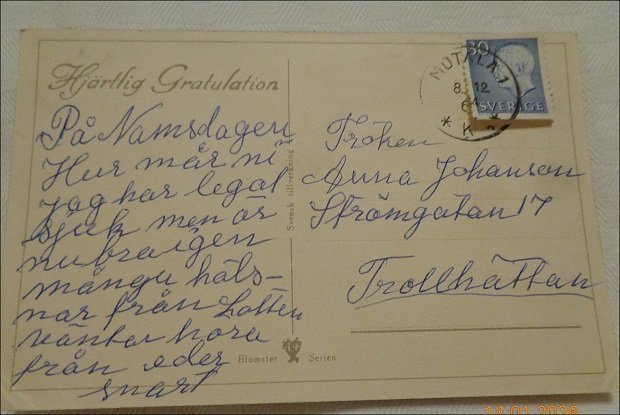 Hjärtlig Gratulation
På Namsdagen
Hur mår ni
jag har legat
sjuk men är
nu bra igen
många häls-
nar från Lotten
väntar höra
från eder
snart
Svensk tillverkning
Blomster Serien
MOTALA 1
8. 12
* K *
30
SVERIGE
Fröken
Anna Johanson
Strömgatan 17
Trollhättan
14.01.2026